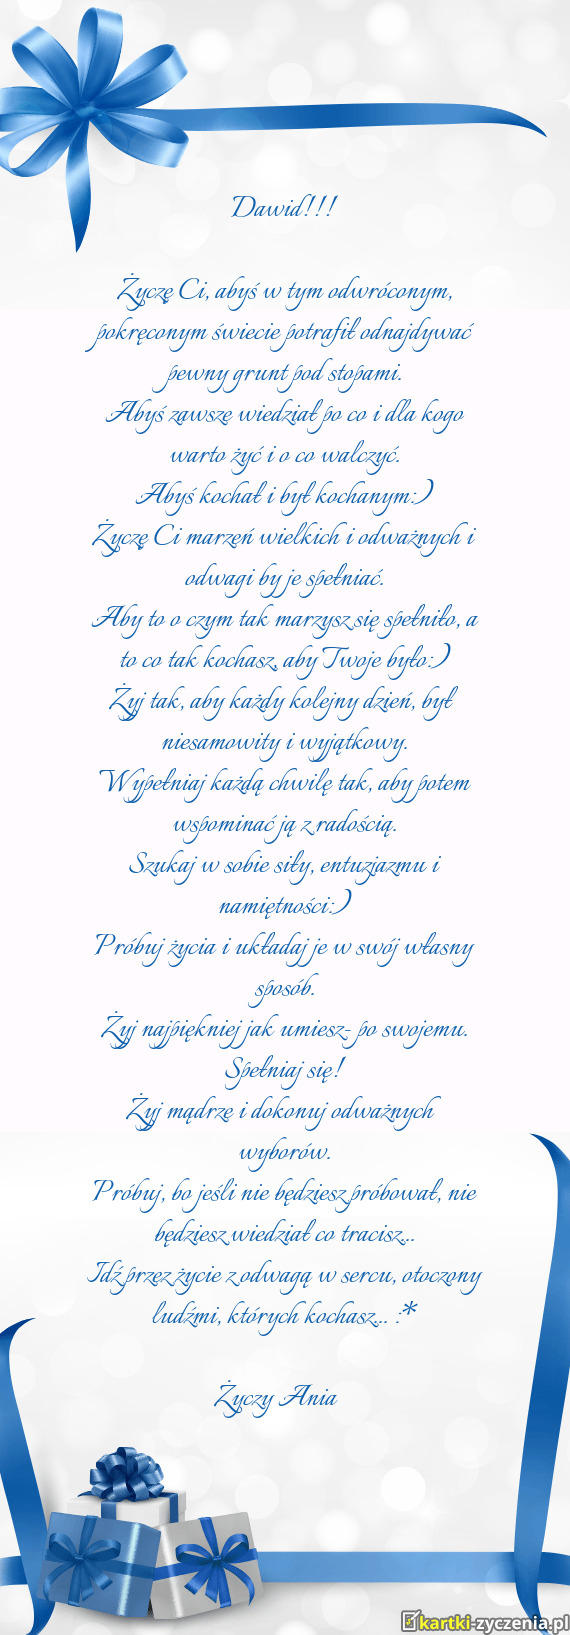 Dawid!!!
Życzę Ci, abyś w tym odwróconym,
pokręconym świecie potrafił odnajdywać
pewny grunt pod stopami.
Abyś zawsze wiedział po co i dla kogo
warto żyć i o co walczyć.
Abyś kochał i był kochanym:)
Życzę Ci marzeń wielkich i odważnych i
odwagi by je spełniać.
Aby to o czym tak marzysz się spełniło, a
to co tak kochasz, aby Twoje było:)
Żyj tak, aby każdy kolejny dzień, był
niesamowity i wyjątkowy.
Wypełniaj każdą chwilę tak, aby potem
wspominać ją z radością.
Szukaj w sobie siły, entuzjazmu i
namiętności:)
Próbuj życia i układaj je w swój własny
sposób.
Żyj najpiękniej jak umiesz- po swojemu.
Spełniaj się!
Żyj mądrze i dokonuj odważnych
wyborów.
Próbuj, bo jeśli nie będziesz próbował, nie
będziesz wiedział co tracisz...
Idź przez życie z odwagą w sercu, otoczony
ludźmi, których kochasz... :*
Życzy Ania
kartki-zyczenia.pl